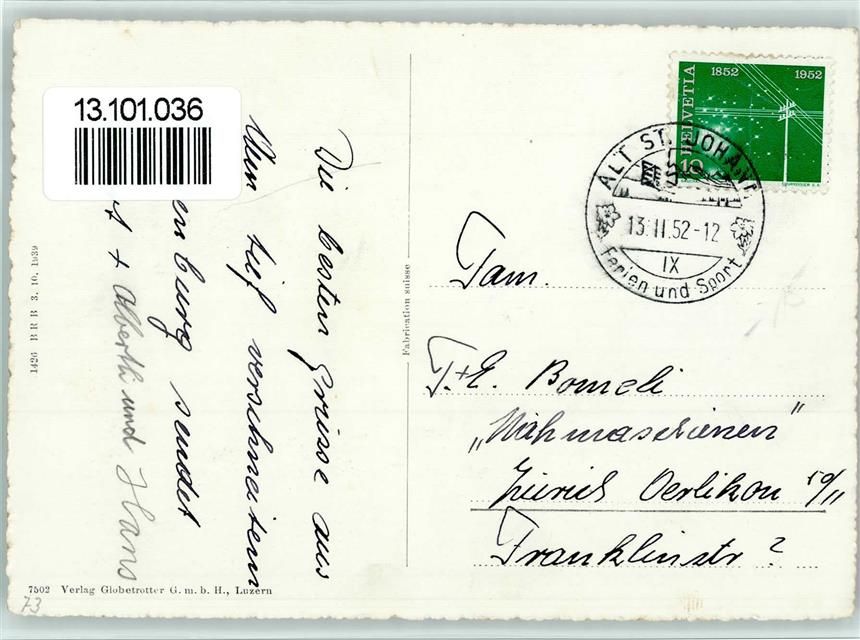 13.101.036
Die besten Grüsse aus
dem tief verschneiten
enburg sendet
t + Alberth und Hans
1426 BRB 3. 10. 1939
7502 Verlag Globetrotter G. m. b. H., Luzern
73
Fabrication suisse
HELVETIA
1852 1952
10
COURVOISIER S.A.
ALT ST. JOHANN
13.II.52-12
IX
Ferien und Sport
Fam.
T.+E. Bomeli
„Nähmaschienen"
Zürich Oerlikon 50/11
Franklinstr ?